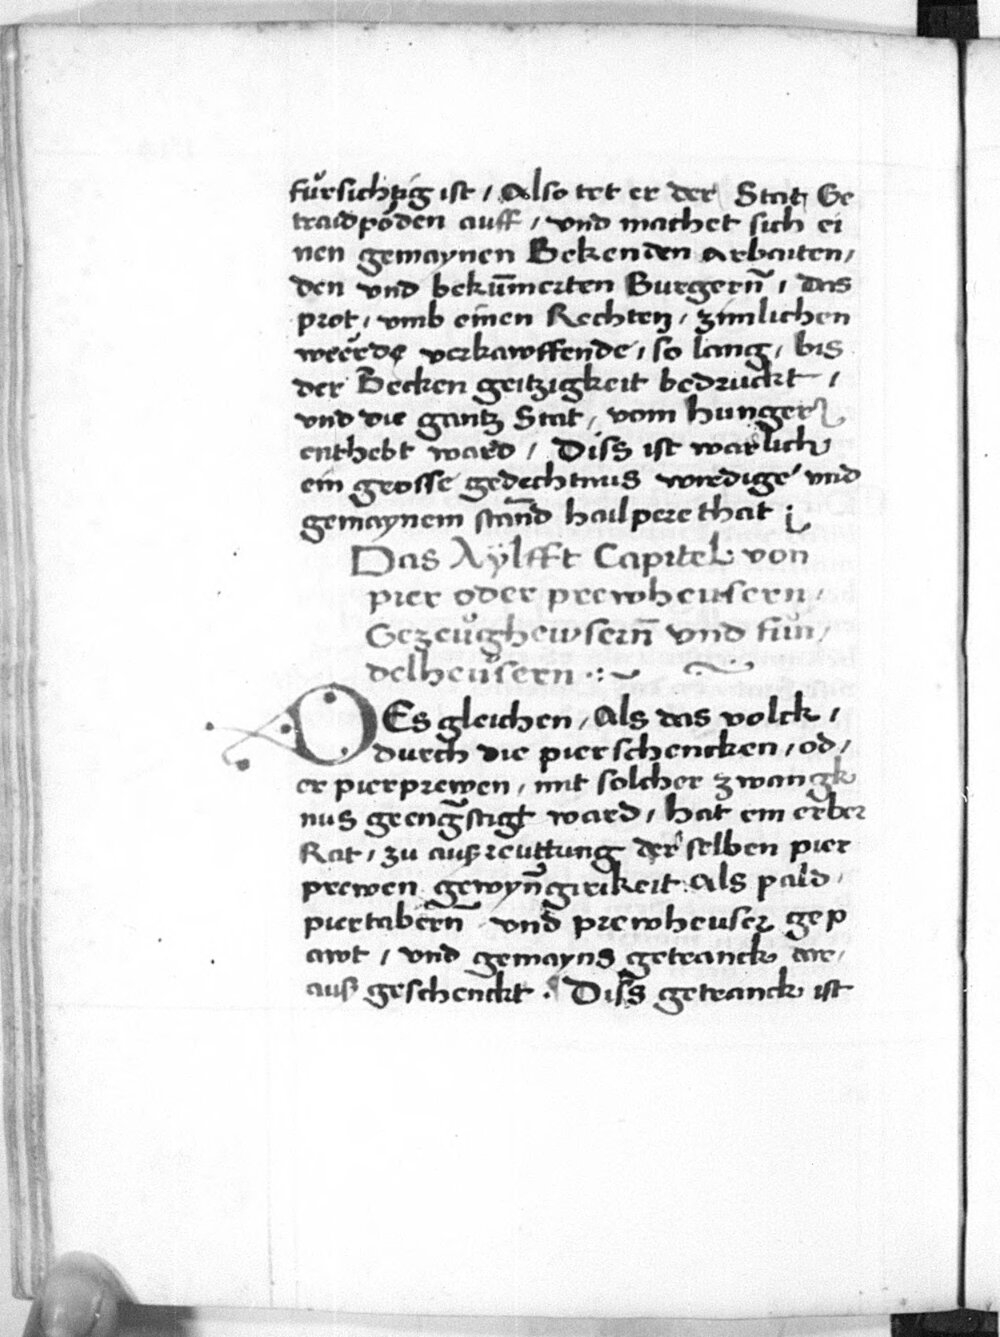 fürsichtig ist / Also tet er der Stat Ge
traidpöden auff / vnd machet sich ei
nen gemaynen Bekenden Arbaiten/
den vnd bekūmerten Burgern̄ / das
prot / vmb einen Rechten / zimlichen
weerde verkawffende / so lang / bis
der Becken geitzigkeit bedruckt /
vnd die gantz Stat / vom hunger
enthebt ward / Diss ist warlich
ein grosse gedechtnus wirdige vnd
gemaynem stānd hailpere that
Das Aÿlfft Capitel von
pier oder prewheusern /
Gezeüghewsern̄ vnd fün/
delheüsern
DEs gleichen / Als das volck /
durch die pierschencken / od/
er pierprewen / mit solcher zwangk
nus geenḡstigt ward / hat ein erber
Rat / zu außreuttung der selben pier
prewen gewyn̄girikeit Als pald
piertabern̄ vnd prewheuser gep
awt / vnd gemayns getranck dar/
auß geschenckt . Diss getranck ist